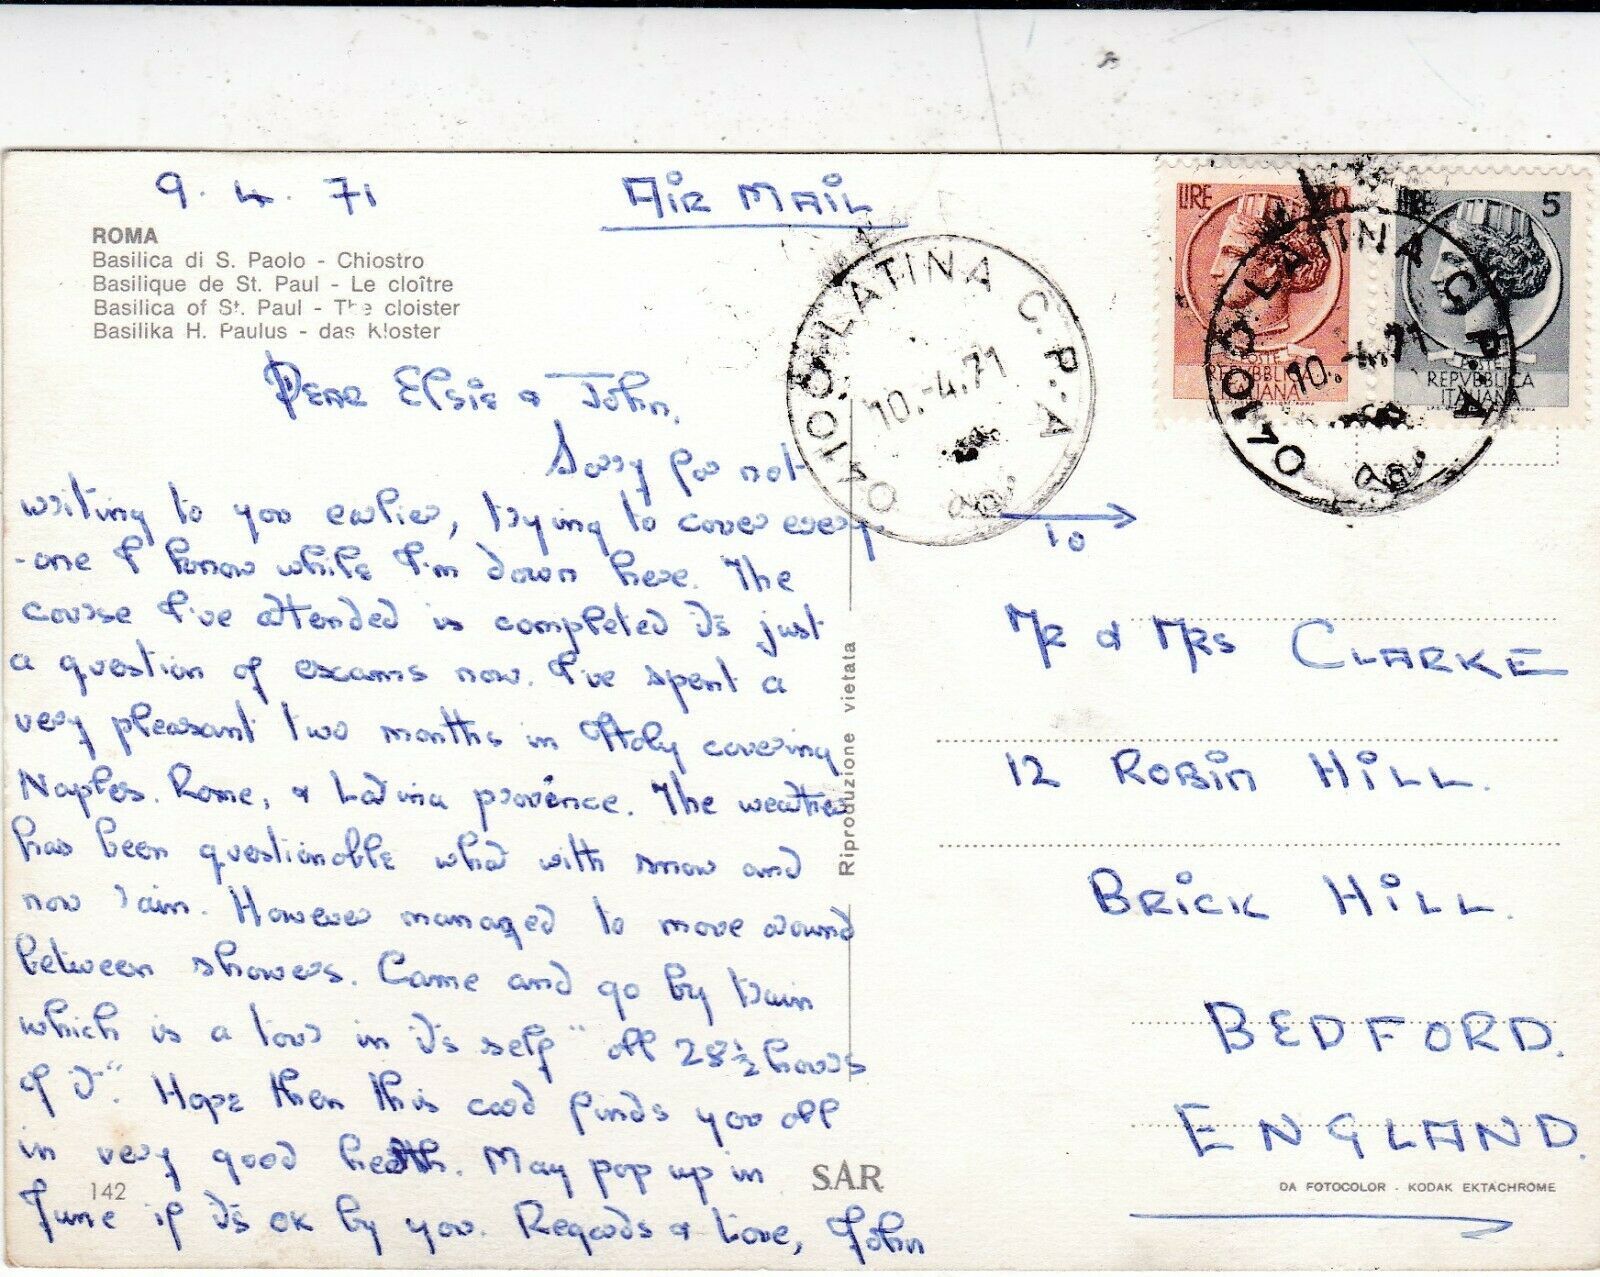 9. 4. 71
AIR MAIL
ROMA
Basilica di S. Paolo - Chiostro
Basilique de St. Paul - Le cloître
Basilica of St. Paul - The cloister
Basilika H. Paulus - das Kloster
Dear Elsie & John,
Sorry for not
writing to you earlier, trying to cover every
-one I know while I'm down here. The
course I've attended is completed it's just
a question of exams now. I've spent a
very pleasant two months in Italy covering
Naples. Rome, & Latina province. The weather
has been questionable what with snow and
now rain. However managed to move around
between showers. Came and go by train
which is a tour in it's self "all 28½ hours
of it". Hope then this card finds you all
in very good health. May pop up in
June if it's ok by you. Regards & Love, John
142
S.A.R.
Riproduzione vietata
04100 LATINA C.P.-A
10.-4.71
LIRE
LIRE 5
POSTE
REPVBBLICA
ITALIANA
POSTE
REPVBBLICA
ITALIANA
04100 LATINA C.P.-A
10.-4.71
To
MR & MRS CLARKE
12 ROBIN HILL.
BRICK HILL.
BEDFORD.
ENGLAND.
DA FOTOCOLOR - KODAK EKTACHROME